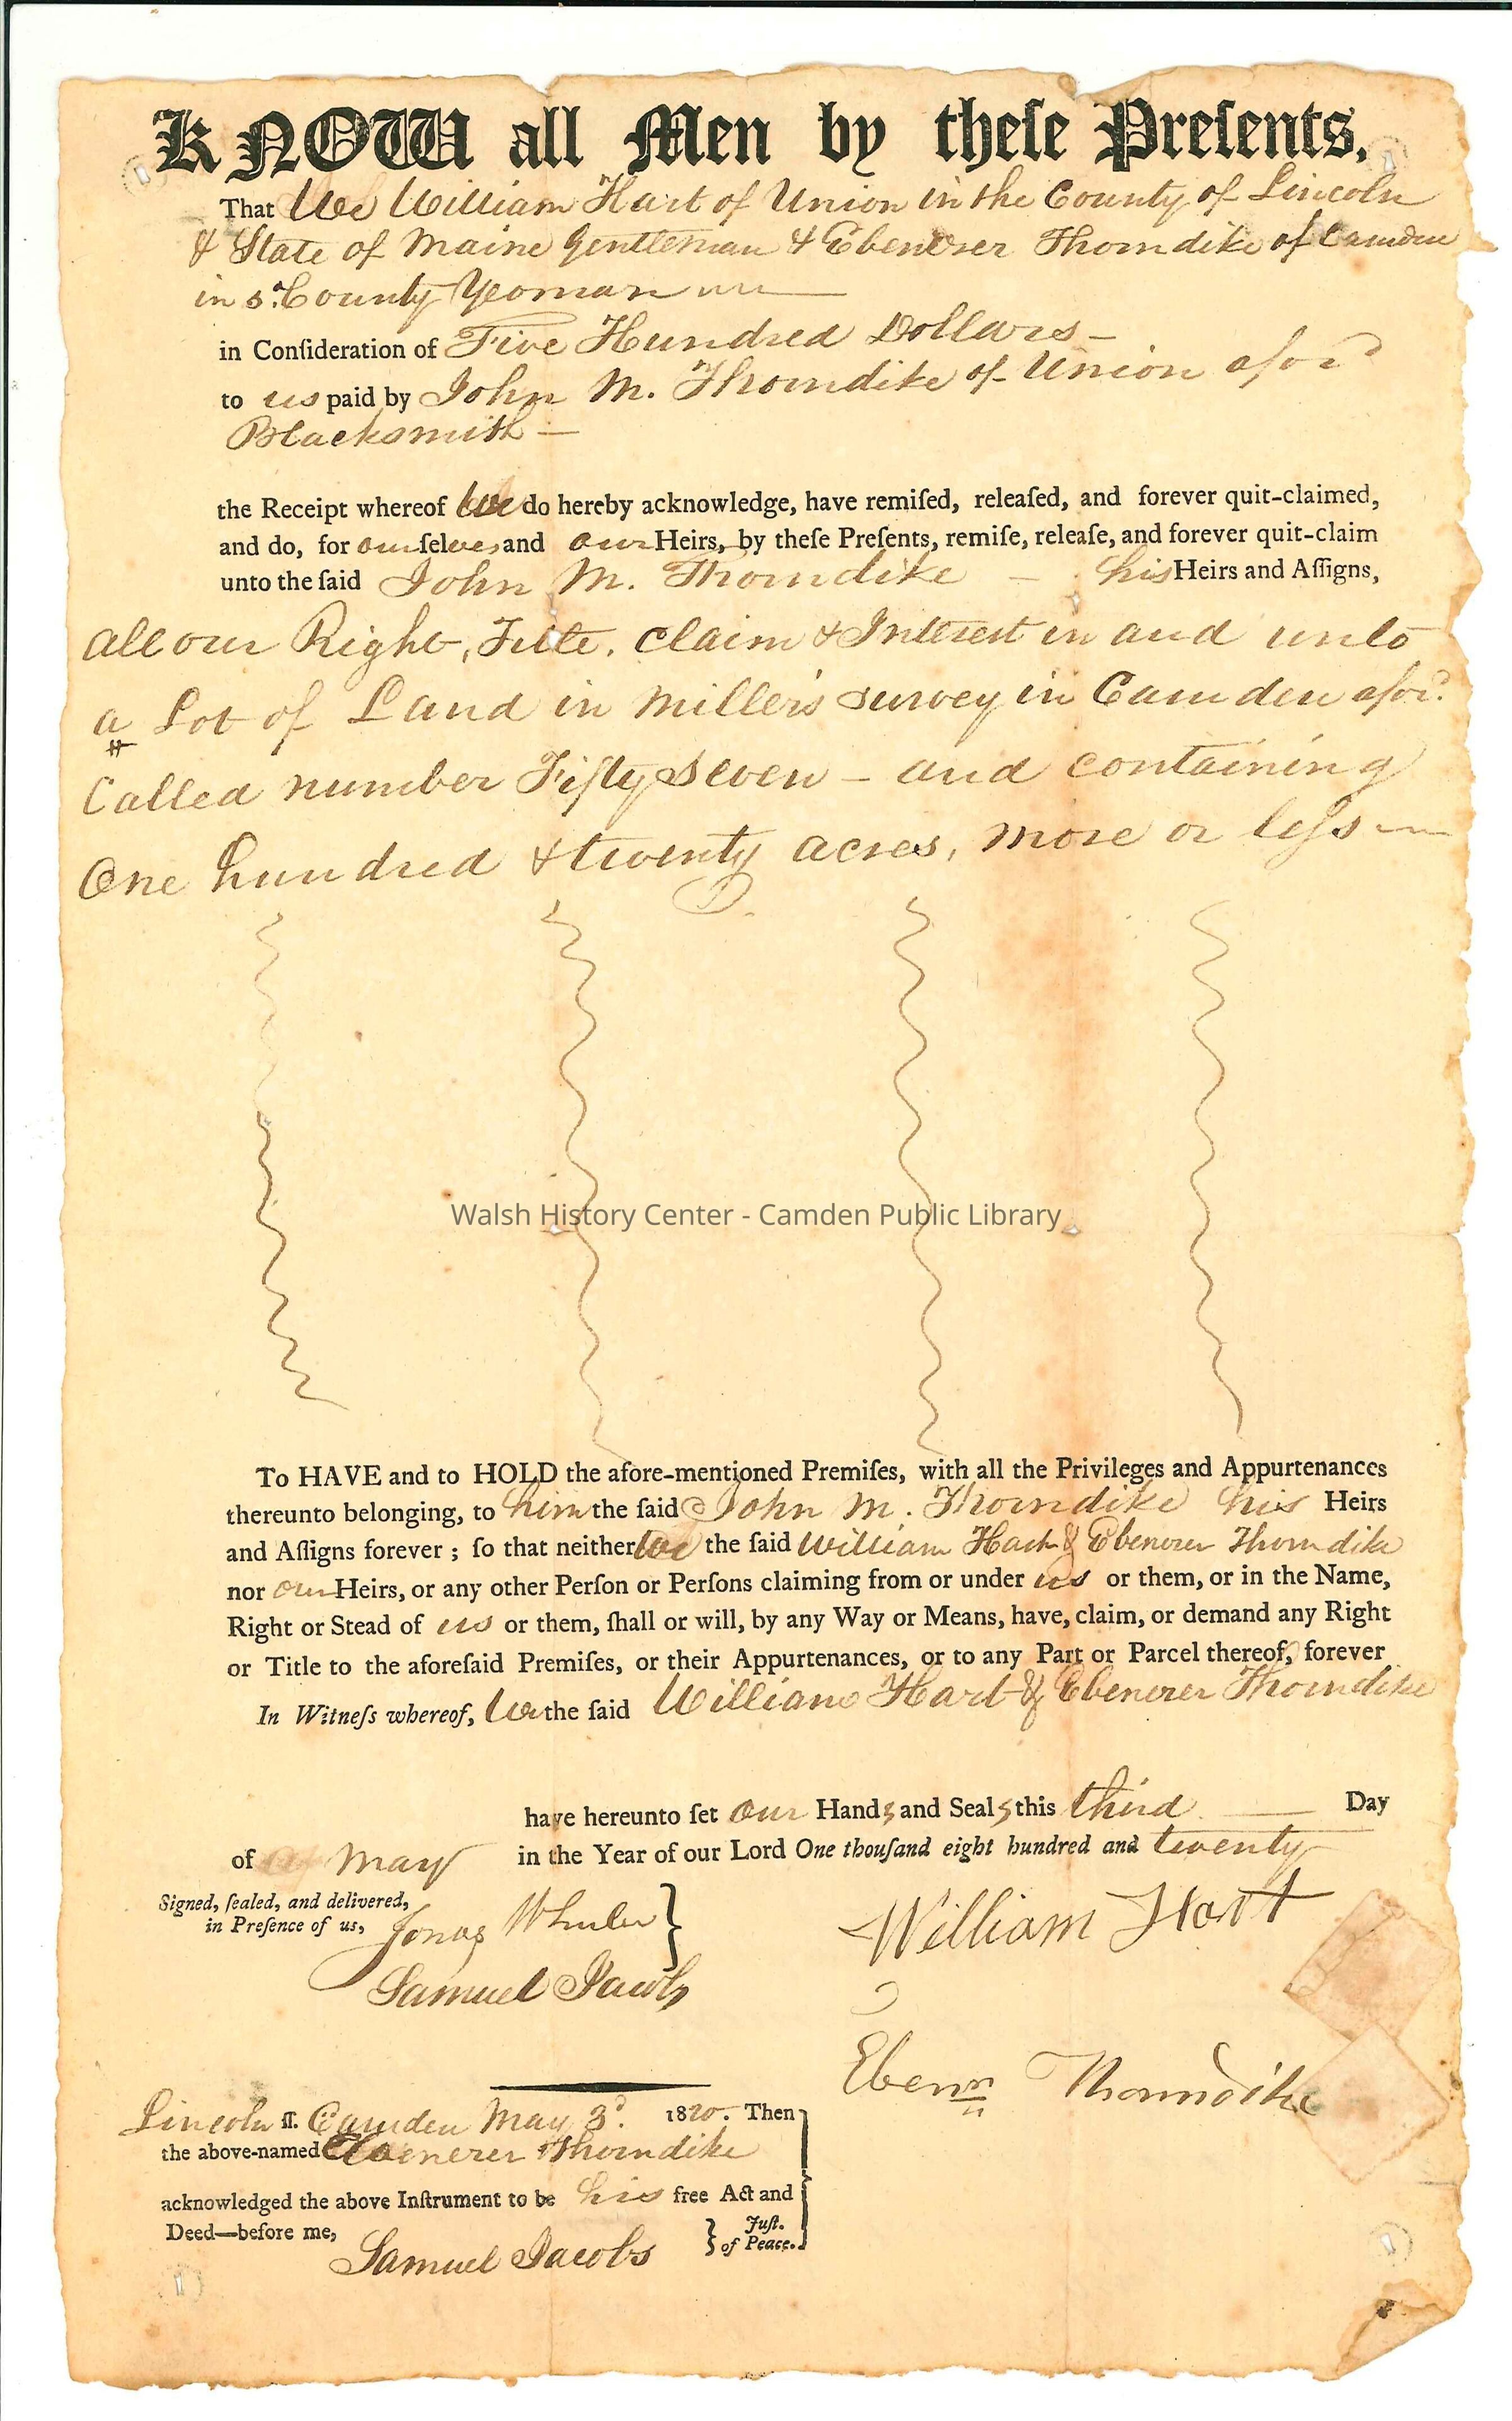 KNOW all Men by theſe Preſents,
That We William Hart of Union in the County of Lincoln
& State of Maine Gentleman & Ebenezer Thorndike of Camden
in sd. County Yeoman
in Conſideration of Five Hundred Dollars —
to us paid by John M. Thorndike of Union aford
Blacksmith —
the Receipt whereof We do hereby acknowledge, have remiſed, releaſed, and forever quit-claimed,
and do, for ourſelves, and our Heirs, by theſe Preſents, remiſe, releaſe, and forever quit-claim
unto the ſaid John M. Thorndike — his Heirs and Aſſigns,
all our Right, Title, Claim & Interest in and unto
a Lot of Land in Miller's survey in Camden aford.
Called number Fifty Seven – and containing
One hundred & twenty acres, more or leſs
Walsh History Center - Camden Public Library
To HAVE and to HOLD the afore-mentioned Premiſes, with all the Privileges and Appurtenances
thereunto belonging, to him the ſaid John M. Thorndike his Heirs
and Aſſigns forever ; ſo that neither We the ſaid William Hart & Ebenezer Thorndike
nor our Heirs, or any other Perſon or Perſons claiming from or under us or them, or in the Name,
Right or Stead of us or them, ſhall or will, by any Way or Means, have, claim, or demand any Right
or Title to the aforeſaid Premiſes, or their Appurtenances, or to any Part or Parcel thereof, forever
In Witneſs whereof, We the ſaid William Hart & Ebenezer Thorndike
have hereunto ſet our Hands and Seals this third — Day
of May in the Year of our Lord One thouſand eight hundred and twenty
Signed, ſealed, and delivered,
in Preſence of us,
Jonas Wheeler
Samuel Jacobs
William Hart
Ebenr Thorndike
Lincoln ſſ. Camden May 3d. 1820. Then
the above-named Ebenezer Thorndike
acknowledged the above Inſtrument to be his free Act and
Deed—before me,
Samuel Jacobs
Juſt.
of Peace.